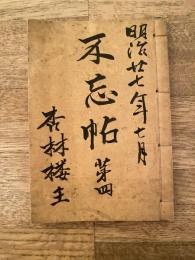 明治廿七年七月
不忘帖 第四
杏林楼主